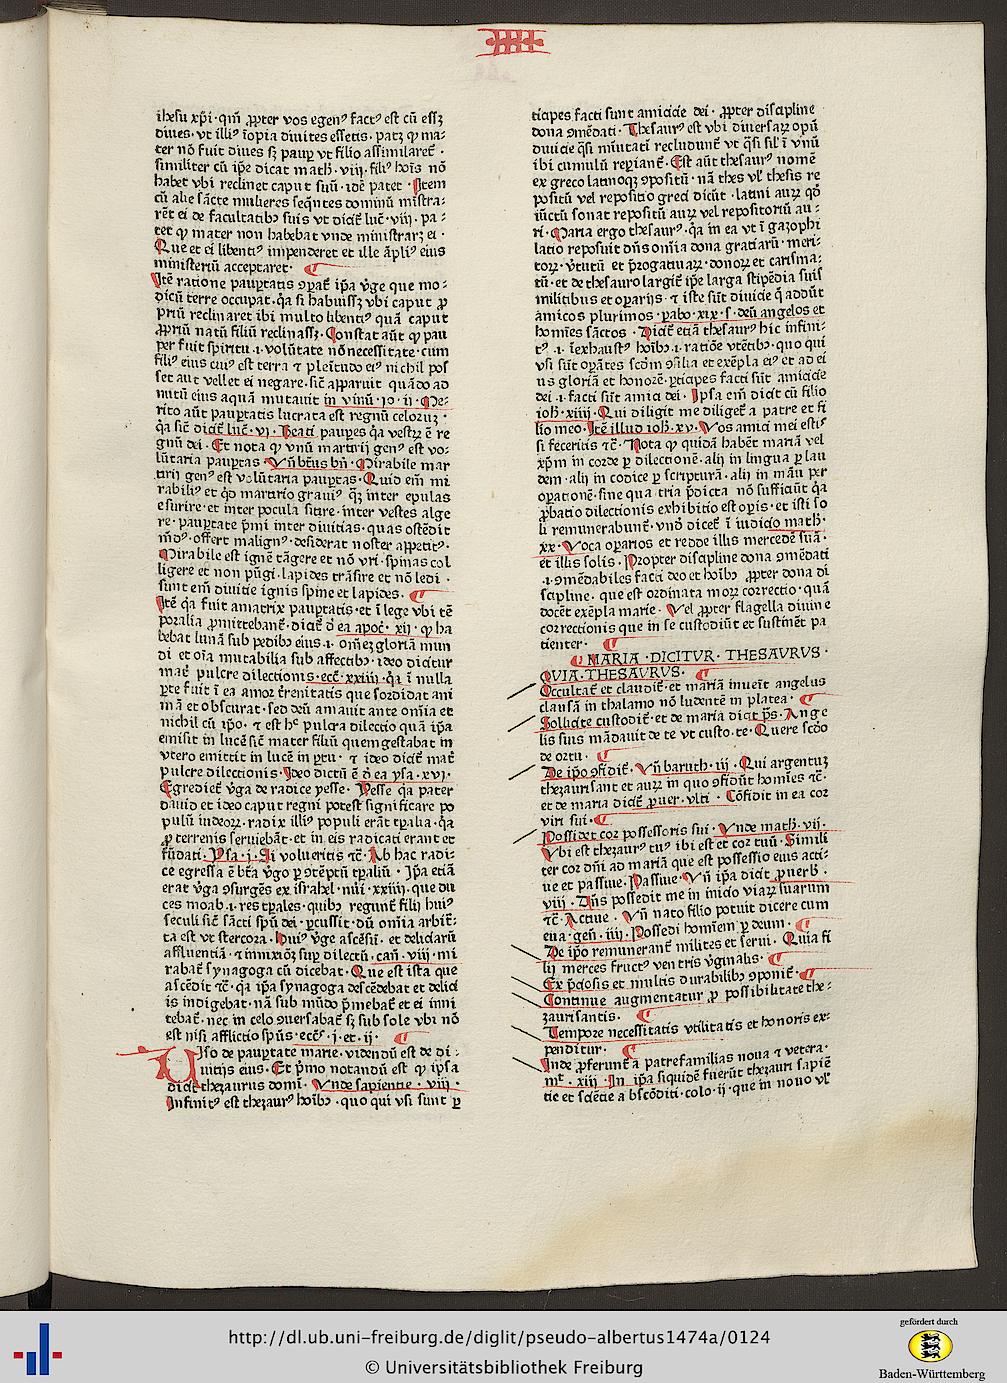 IIII
ihesu xp̄i·qm̄ ꝓpter vos egenꝰ factꝰ est cū essꝫ
diues·vt illiꝰ īopia diuites essetis·patꝫ ꝙ ma-
ter nō fuit diues sꝫ paup̄ vt filio assimilaret̄·
similiter cū ip̄e dicat math̄·viij·filiꝰ hoīs nō
habet vbi reclinet caput suū·idē patet·Item
cū alie sācte mulieres seq̄ntes dominū mīstra-
rēt ei de facultatibꝰ suis vt dicit̄ luc̄·viij·pa-
tet ꝙ mater non habebat vnde ministrarꝫ ei·
Que et ei libentiꝰ impenderet et ille āpliꝰ eius
ministeriū acceptaret·
Itē ratione paup̱tatis ꝯꝑat̄ ip̄a v̄ge que mo-
dicū terre occupat·q̄a si habuissꝫ vbi caput ꝓ
priū reclinaret ibi multo libentiꝰ quā caput
ꝓpriū natū filiū reclinassꝫ·Constat aūt ꝙ pau
per fuit spiritu·i·volūtate nō necessitate·cum
filiꝰ eius cuiꝰ est terra ⁊ pleītudo eiꝰ nichil pos
set aut vellet ei negare·sic̄ apparuit quādo ad
nutū eius aquā mutauit in vinū·io·ij·Me-
rito aūt paup̱tatis lucrata est regnū celoꝝ·
q̄a sic̄ dicit̄ luc̄·vj·Beati paup̱es q̄a vestꝝ ē re
gnū dei·Et nota ꝙ vnū martirij genꝰ est vo-
lūtaria paup̱tas·Vn̄ btūs bn̄·Mirabile mar
tirij genꝰ est volūtaria paup̱tas·Quid em̄ mi
rabiliꝰ et qd̄ martirio grauiꝰ q̄ꝫ inter epulas
esurire·et inter pocula sitire·inter vestes alge
re·paup̱tate p̄mi inter diuitias·quas ostēdit
mūdꝰ·offert malignꝰ·desiderat noster appetitꝰ·
Mirabile est ignē tāgere et nō vri·spinas col
ligere et non pūgi·lapides trāsire et nō ledi·
sunt em̄ diuitie ignis spine et lapides·
Itē q̄a fuit amatrix paup̱tatis·et ī lege vbi tē
poralia ꝓmittebant̄·dicit̄ d̄ ea apoc̄·xij·ꝙ ha
bebat lunā sub pedibꝰ eius·i·om̄eꝫ gloriā mun
di et oīa mutabilia sub affectibꝰ·ideo dicitur
mat̄ pulcre dilectionis·ecc̄·xxiiij·q̄a ī nulla
ꝑte fuit ī ea amor t̄renitatis que sordidat ani
mā et obscurat·sed deū amauit ante om̄ia et
nichil cū ip̄o·⁊ est hᶜ pulcra dilectio quā ip̄a
emisit in lucē sic̄ mater filiū quem gestabat in
vtero emittit in lucē in ꝑtu·⁊ ideo dicit̄ mat̄
pulcre dilectionis·Ideo dictū ē d̄ ea ysa·xvj·
Egrediet̄ v̄ga de radice yesse·Yesse q̄a pater
dauid et ideo caput regni potest significare po
pulū iudeoꝝ·radix illiꝰ populi erāt tꝑalia·q̄a
ꝓ terrenis seruiebāt·et in eis radicati erant et
fūdati·Ysa·j·Si volueritis ⁊c̄·Ab hac radi-
ce egressa ē btā v̄go ꝑ ꝯtēptū tꝑaliū·Ip̄a etiā
erat v̄ga ꝯsurgēs ex israhel·nūi·xxiiij·que du
ces moab·i·res tꝑales·quibꝰ regunt̄ filij huiꝰ
seculi sic̄ sācti spū dei·ꝑcussit·dū om̄ia arbit̄-
ta est vt stercora·Huiꝰ v̄ge ascēsū·et deliciarū
affluentiā·⁊ innixiōꝫ sup̄ dilectū·can̄·viij·mi
rabat̄ synagoga cū dicebat·Que est ista que
ascēdit ⁊c̄·q̄a ip̄a synagoga descēdebat et delicī
is indigebat·nā sub mūdo p̄mebat̄ et ei inni
tebat̄·nec in celo ꝯuersabat̄ sꝫ sub sole vbi nō
est nisi afflictio sp̄us·ecc̄s·j·et·ij·
Viso de paup̱tate marie·videndū est de di-
uitijs eius·Et p̄mo notandū est ꝙ ip̄sa
dicit̄ thezaurus domī·Vnde sapientie·viij·
Infinitꝰ est thezaurꝰ hoībꝰ·quo qui vsi sunt ꝑ
ticipes facti sunt amicicie dei·ꝓpter discipline
dona ꝯmēdati·Thesaurꝰ est vbi diuersaꝝ opū
diuicie q̄si minutati recludunt̄ vt q̄si sil̄ ī vnū
ibi cumulū reꝑiant̄·Est aūt thesaurꝰ nomē
ex greco latinoqꝫ ꝯpositū·nā thes vl̄ thesis re
positū vel repositio greci dicūt·latini auꝝ qd̄
iūctū sonat repositū auꝝ vel repositoriū au-
ri·Maria ergo thesaurꝰ·q̄a in ea vt ī gazophi
latio reposuit dn̄s om̄ia dona gratiarū·meri-
toꝝ·v̄tutū et p̄rogatiuaꝝ·donoꝝ et carisma-
tū·et de thesauro largit̄ ip̄e larga stipēdia suis
militibus et oꝑarijs·⁊ iste sūt diuicie q̄ addūt
amicos plurimos·ꝑabo·xix·s·deū angelos et
homīes sāctos·Dicit̄ etiā thesaurꝰ hic infini-
tꝰ·i·īexhaustꝰ hoībꝰ·i·ratiōe vtētibꝰ·quo qui
vsi sūt oꝑātes scd̄m ꝯsilia et exēpla eiꝰ et ad ei
us gloriā et honorē·ꝑticipes facti sūt amicicie
dei·i·facti sūt amici dei·Ipsa em̄ dicit cū filio
ioh̄·xiiij·Qui diligit me diliget̄ a patre et fi
lio meo·Itē illud ioh̄·xv·Vos amici mei estꝭ
si feceritis ⁊c̄·Nota ꝙ quidā habēt mariā vel
xp̄m in corde ꝑ dilectionē·alij in lingua ꝑ lau
dem·alij in codice ꝑ scripturā·alij in māu ꝑ
oꝑationē·sine qua tria p̄dicta nō sufficiūt q̄a
ꝓbatio dilectionis exhibitio est oꝑis·et isti so
li remunerabunt̄·vnō dicet̄ ī iudicio math̄·
xx·Voca oꝑarios et redde illis mercedē suā·
et illis solis·Propter discipline dona ꝯmēdati
·i·ꝯmēdabiles facti deo et hoībꝰ ꝓpter dona di
scipline·que est ordinata moꝝ correctio·quā
docēt exēpla marie·Vel ꝓpter flagella diuine
correctionis que in se custodiūt et sustinēt pa
tienter·
MARIA·DICITVR·THESAVRVS·
QVIA·THESAVRVS·
Occultat̄ et claudit̄·et mariā inueīt angelus
clausā in thalamo nō ludentē in platea·
Sollicite custodit̄·et de maria dicit p̄s·Ange
lis suis mādauit de te vt custo·te·Quere s̄cdo
de ortu·
De ip̄o ꝯfidit̄·Vn̄ baruch·iij·Qui argentuꝫ
thezaurisant et auꝝ in quo ꝯfidūt homīes ⁊c̄·
et de maria dicit̄ ꝓuer·vlti·Cōfidit in ea cor
viri sui·
Possidet cor possessoris sui·Vnde math̄·vij·
Vbi est thezaurꝰ tuꝰ ibi est et cor tuū·Simili
ter cor dn̄i ad mariā que est possessio eius acti-
ue et passiue·Passiue·Vn̄ ip̄a dicit ꝓuerb̄·
viij·Dn̄s possedit me in inicio viaꝝ suarum
⁊c̄·Actiue·Vn̄ nato filio potuit dicere cum
eua·gen̄·iiij·Possedi hominem ꝑ deum·
De ip̄o remunerant̄ milites et serui·Quia fi
lij merces fructꝰ ventris v̄ginalis·
Ex p̄ciosis et multis durabilibꝰ ꝯponit̄·
Continue augmentatur ꝓ possibilitate the-
zaurisantis·
Tempore necessitatis vtilitatis et honoris ex-
penditur·
Inde ꝓferunt̄ a patrefamilias noua ⁊ vetera·
mᵗ·xiij·In ip̄a siquidē fuerūt thezauri sapiē
tie et sciētie abscōditi·colo·ij·que in nouo vl̄
http://dl.ub.uni-freiburg.de/diglit/pseudo-albertus1474a/0124
© Universitätsbibliothek Freiburg
gefördert durch
Baden-Württemberg